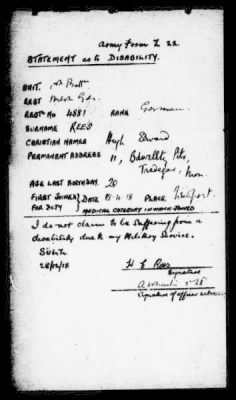 Army Form Z 22.
STATEMENT as to DISABILITY.
UNIT.
REGT Welsh Gds.
REGTL No 4881 RANK Guardsman.
SURNAME REES
CHRISTIAN NAMES Hugh Edward
PERMANENT ADDRESS 11, Bedwellty Pits,
Tredegar, Mon.
AGE LAST BIRTHDAY. 20
FIRST JOINED FOR DUTY DATE 18 PLACE Newport.
MEDICAL CATEGORY IN WHICH JOINED
I do not claim to be suffering from a
disability due to my Military Service.
28/12/18
H E Rees
Signature
Signature of officer witness